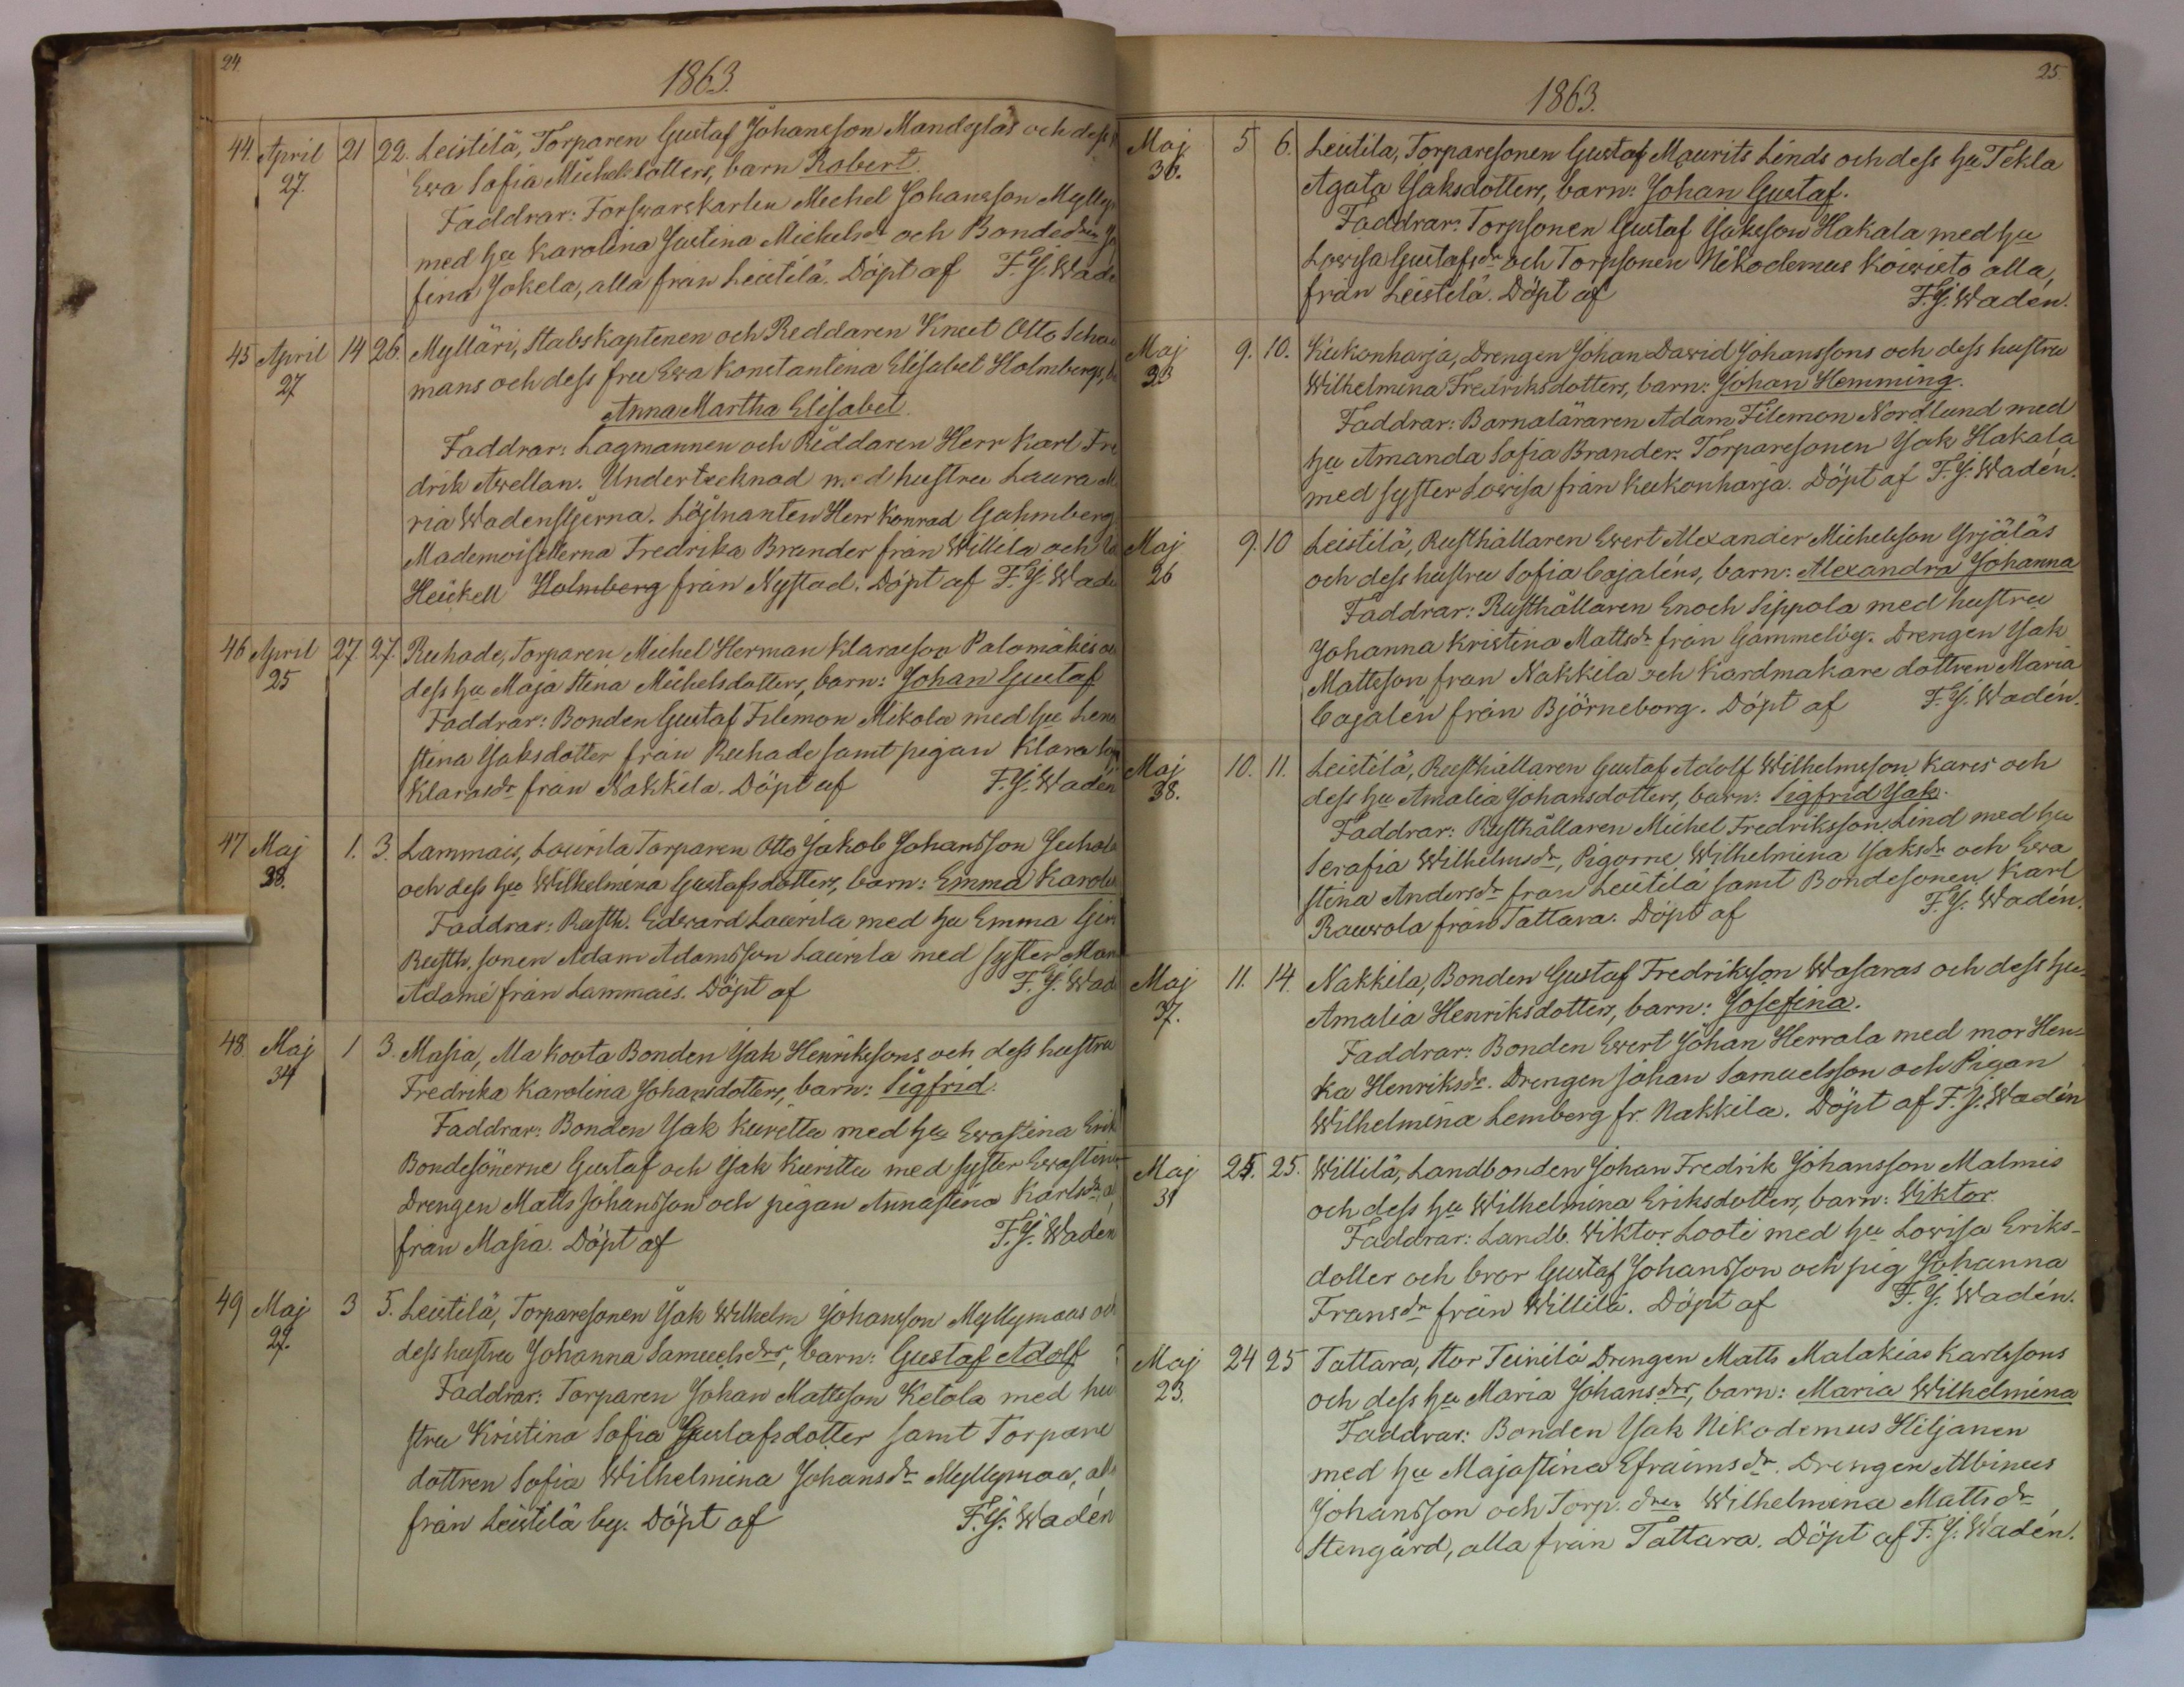 24.
1863.
44. April 21 22. Leistilä, Torparen Gustaf Johansson Mandglas och dess
27. Ewa Sofia Michelsdotters, barn Robert.
Faddrar: Forswarskarlen Michel Johansson
med hu Karolina Justina Michelsdr och Bondedren
fina Jokela, alla från Leistilä. Döpt af F. J. Wadé
45 April 14 26. Mylläri, Stabskaptenen och Reddaren Knut Otto Schau
27 mans och dess fru Ewa Konstantina Elisabet Holmbergs,
Anna Martha Elisabet.
Faddrar: Lagmannen och Riddaren Herr Karl Fre
drik Awellan. Undertecknad med hustru Laura Ma
ria Wadenstjerna. Löjtnanten Herr Konrad Gahmberg
Mademoisellerna Fredrika Brander från Willila och
Heickell Holmberg från Nystad. Döpt af F. J. Wadé
46 April 27. 27. Ruhade, Torparen Michel Herman Klarasson Palomäkis oc
25 dess hu Maja Stina Michelsdotters, barn: Johan Gustaf
Faddrar: Bonden Gustaf Filemon Mikola med hu Lena
stina Jaksdotter från Ruhade samt pigan Klara
Klarasdr från Nakkila. Döpt af F. J. Wadén
47 Maj 1. 3. Lammais, Laurila Torparen Otto Jakob Johansson Juhola
38. och dess hu Wilhelmina Gustafsdotters, barn: Emma Karolin
Faddrar: Rusth. Edward Laurila med hu Emma
Rusth. sonen Adam Adamsson Laurila med syster
Adamé från Lammais. Döpt af F. J. Wadé
48 Maj 1 3. Masia, Ma Koota Bonden Jak Henrikssons och dess hustru
34 Fredrika Karolina Johansdotters, barn: Sigfrid.
Faddrar: Bonden Jak Kurittu med hu Ewastina Erik
Bondesönerne Gustaf och Jak Kurittu med syster Ewastina
Drengen Matts Johansson och pigan Annastina Karlsdr,
från Masia. Döpt af F. J. Wadén
49 Maj 3 5. Leistilä, Torparesonen Jak Wilhelm Johansson Myllymaas och
29. dess hustru Johanna Samuelsdrs, barn: Gustaf Adolf
Faddrar: Torparen Johan Mattsson Ketola med hu
stru Kristina Sofia Gustafsdotter samt Torpare
dottren Sofia Wilhelmina Johansdr Myllymaa, alla
från Leistilä by. Döpt af F. J. Wadén
25.
1863.
Maj 5 6. Leistila, Torparesonen Gustaf Maurits Linds och dess hu Tekla
36. Agata Jaksdotters, barn: Johan Gustaf.
Faddrar: Torpsonen Gustaf Jaksson Hakala med hu
Lowisa Gustafsdr och Torpsonen Nikodemus Koiwisto alla,
från Leistilä. Döpt af F. J. Wadén.
Maj 9. 10. Kukonharja, Drengen Johan Dawid Johanssons och dess hustru
23 Wilhelmina Fredriksdotters, barn: Johan Hemming.
Faddrar: Barnaläraren Adam Filemon Nordlund med
hu Amanda Sofia Brander. Torparesonen Jak Hakala
med syster Lowisa från Kukonharja. Döpt af F. J. Wadén.
Maj 9. 10 Leistilä, Rusthållaren Ewert Alexander Michelsson Yrjäläs
26 och dess hustru Sofia Cajaléns, barn: Alexandra Johanna
Faddrar: Rusthållaren Enoch Sippola med hustru
Johanna Kristina Mattsdr från Gammelby. Drengen Jak
Mattsson från Nakkila och Kardmakare dottren Maria
Cajalen från Björneborg. Döpt af F. J. Wadén.
Maj 10. 11. Leistilä, Rusthållaren Gustaf Adolf Wilhelmsson Kares och
38. dess hu Amalia Johansdotters, barn: Sigfrid Jak.
Faddrar: Rusthållaren Michel Fredriksson Lind med hu
Serafia Wilhelmsdr, Pigorne Wilhelmina Jaksdr och Ewa
stina Andersdr från Leistilä samt Bondesonen Karl
Rauwola från Tattara. Döpt af F. J. Wadén.
Maj 11. 14. Nakkila, Bonden Gustaf Fredriksson Wasaras och dess hu
37. Amalia Henriksdotters, barn: Josefina.
Faddrar: Bonden Ewert Johan Herrala med mor Hen-
ka Henriksdr. Drengen Johan Samuelsson och Pigan
Wilhelmina Lemberg fr. Nakkila. Döpt af F. J. Wadén
Maj 25. 25. Willilä, Landbonden Johan Fredrik Johansson Malmis
31 och dess hu Wilhelmina Eriksdotters, barn: Wiktor.
Faddrar: Landb. Wiktor Looti med hu Lowisa Eriks-
dotter och bror Gustaf Johansson och pig Johanna
Fransdr från Willilä. Döpt af F. J. Wadén.
Maj 24 25 Tattara, Stor Teinilä Drengen Matts Malakias Karlssons
23. och dess hu Maria Johansdrs, barn: Maria Wilhelmina
Faddrar: Bonden Jak Nikodemus Hiljanen
med hu Majastina Efraimsdr. Drengen Albinus
Johansson och Torp. dren Wilhelmina Mattsdr
Stengård, alla från Tattara. Döpt af F. J. Wadén.